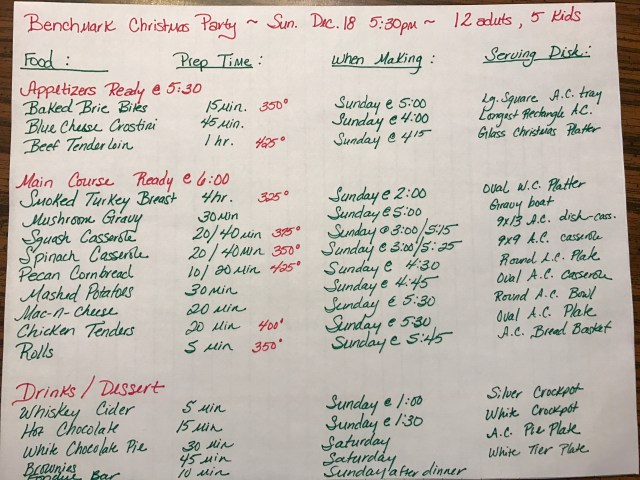 Benchmark Christmas Party ~ Sun. Dec. 18 5:30pm ~ 12 adults, 5 kids
Food: Prep Time: When Making: Serving Dish:
Appetizers Ready @ 5:30
Baked Brie Bites 15 min. 350° Sunday @ 5:00 Lg. Square A.C. tray
Blue Cheese Crostini 45 min. Sunday @ 4:00 Longest Rectangle A.C.
Beef Tenderloin 1 hr. 425° Sunday @ 4:15 Glass Christmas Platter
Main Course Ready @ 6:00
Smoked Turkey Breast 4hr. 325° Sunday @ 2:00 Oval W.C. Platter
Mushroom Gravy 30 min Sunday @ 5:00 Gravy boat
Squash Casserole 20/40 min 375° Sunday @ 3:00/5:15 9x13 A.C. dish-cass.
Spinach Casserole 20/40 min 350° Sunday @ 3:00/5:25 9x9 A.C. casserole
Pecan Cornbread 10/20 min 425° Sunday @ 4:30 Round A.C. Plate
Mashed Potatoes 30 min Sunday @ 4:45 Oval A.C. Casserole
Mac-n-cheese 20 min Sunday @ 5:30 Round A.C. Bowl
Chicken Tenders 20 min 400° Sunday @ 5:30 Oval A.C. Plate
Rolls 5 min 350° Sunday @ 5:45 A.C. Bread Basket
Drinks / Dessert
Whiskey Cider 5 min Sunday @ 1:00 Silver Crockpot
Hot Chocolate 15 min Sunday @ 1:30 White Crockpot
White Chocolate Pie 30 min Saturday A.C. Pie Plate
Brownies 45 min Saturday White Tier Plate
Bar 10 min Sunday after dinner